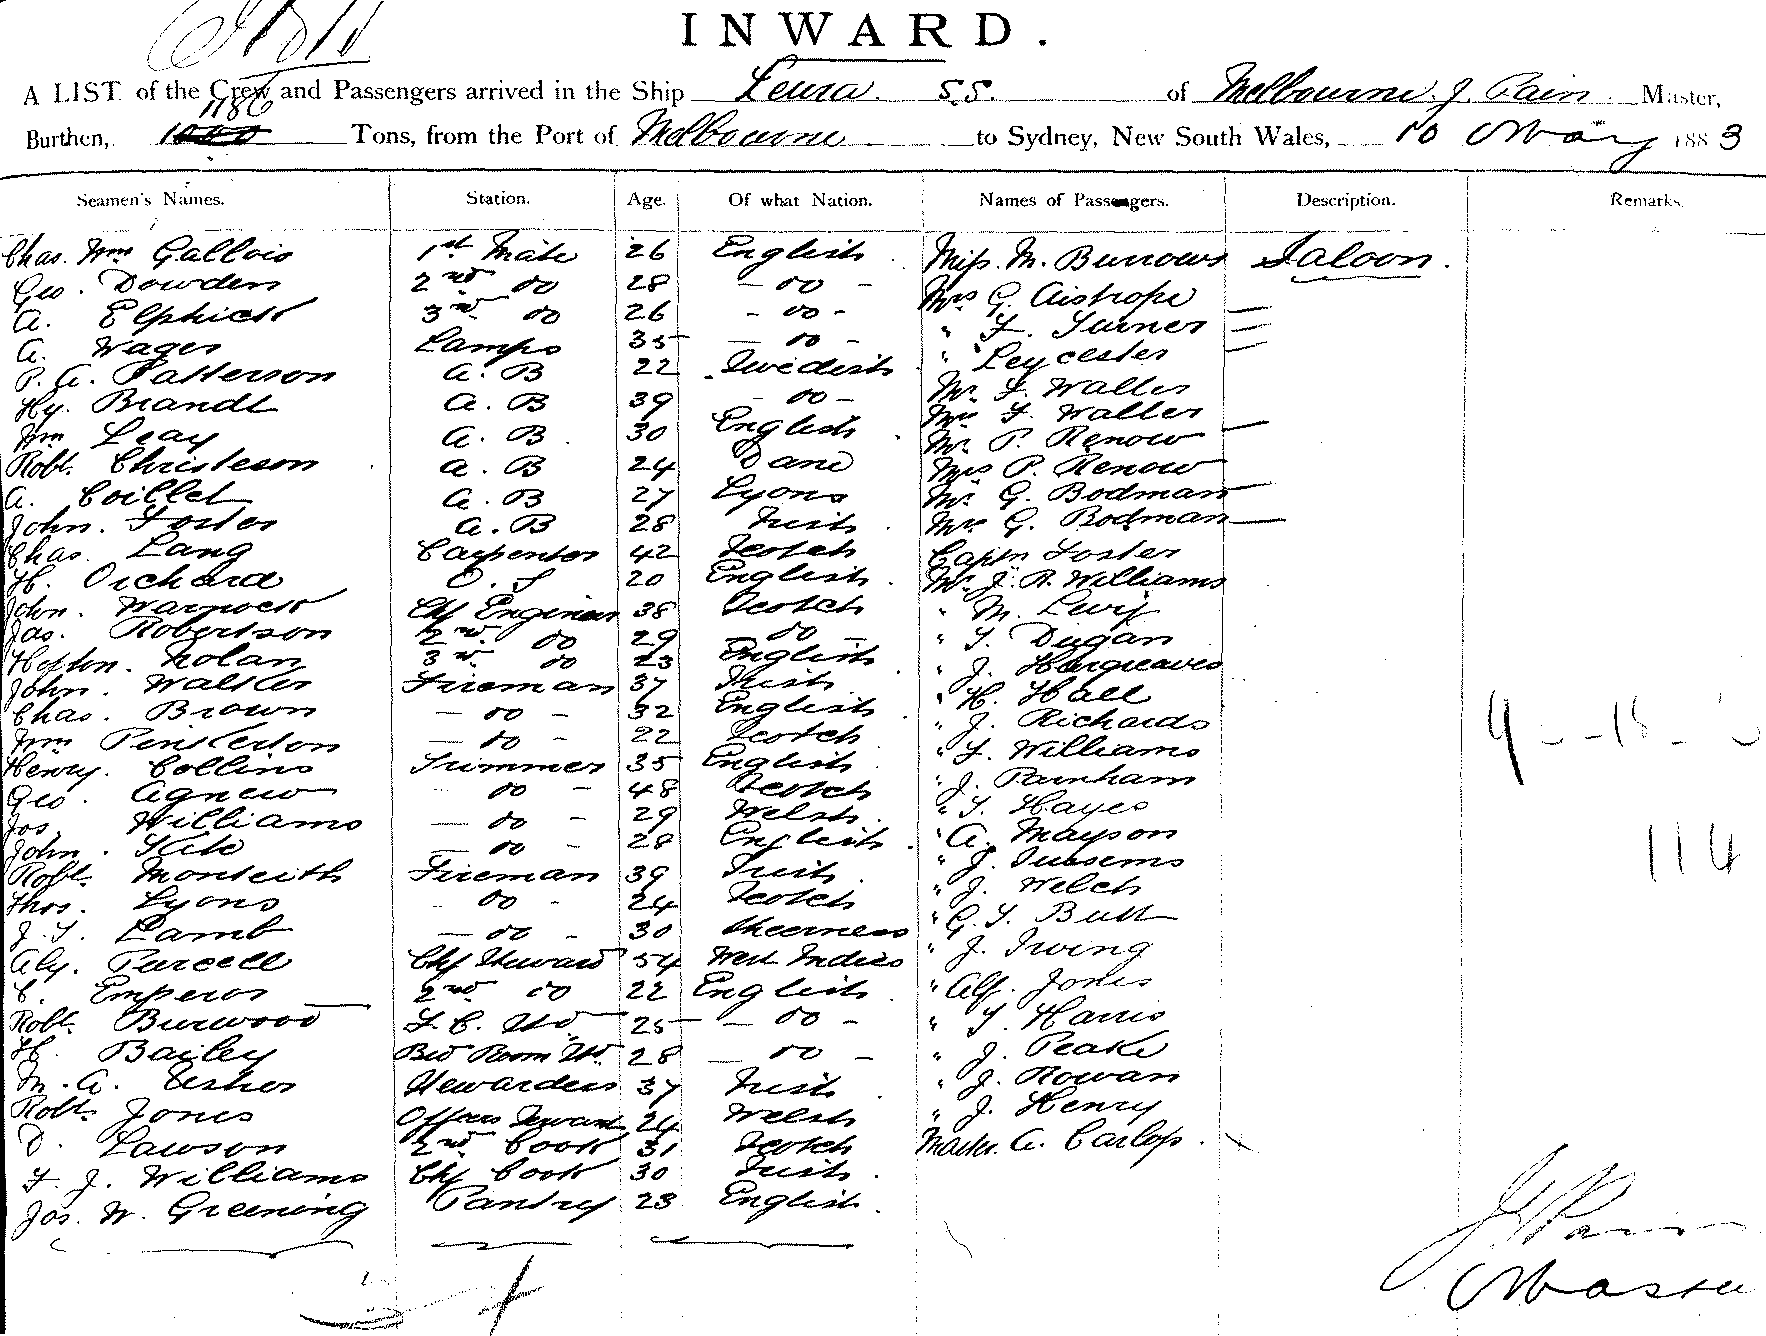 INWARD.
A LIST of the Crew and Passengers arrived in the Ship Leura S.S. of Melbourne, J. Pain Master,
1186
Burthen, 1000 Tons, from the Port of Melbourne to Sydney, New South Wales, 10 May 1883
Seamen's Names. Station. Age. Of what Nation. Names of Passengers. Description. Remarks.
Chas. Wm Gallois 1st Mate 26 English Miss M. Burrows Saloon.
Geo. Dowden 2nd do 28 - do - Mrs G. Aistrope
A. Elphick 3rd do 26 - do - " F. Turner
A. Wager Lamps 35 - do - " Leycester
P. A. Patterson A. B 22 Swedish Mr. F. Waller
Hy. Brandt A. B 39 - do - Mrs F. Waller
Wm Leay A. B. 30 English Mr. P. Renow
Robt. Christeson A. B 24 Dane Mrs P. Renow
A. Coillet A. B 27 Lyons Mr. G. Bodman
John. Foster A. B 28 Irish Mrs G. Bodman
Chas. Lang Carpenter 42 Scotch Captn Foster
H. Orchard O. S 20 English Mr. J. R. Williams
John. Warnock Chf Engineer 38 Scotch " M. Levy
Jas. Robertson 2nd. do 29 - do - " T. Dugan
Hopton. Nolan 3rd do 23 English " J. Hargreaves
John. Walker Fireman 37 Irish " H. Hall
Chas. Brown - do - 32 English " J. Richards
Wm Pinkerton - do - 22 Scotch " T. Williams
Henry. Collins Trimmer 35 English " J. Parnham
Geo. Agnew - do - 48 Scotch " T. Hayes
Jos. Williams - do - 29 Welsh " A. Mayson
John. - do - 28 English " J.
Robt. Monteith Fireman 39 Irish " J. Welch
Thos. Lyons - do - 24 Scotch " G. T. Butt
J. T. Lamb - do - 30 Sheerness " J. Irwing
Alx. Purcell Chf Steward 54 West Indies " Alf. Jones
C. Emperor 2nd do 22 English " T. Harris
Robt. Burwood F. C. Std. 25 - do - " J. Peake
H. Bailey Bed Room Std. 28 - do - " J. Rowan
M. A. Usher Stewardess 37 Irish " J. Henry
Robt. Jones Officers Servant 24 Welsh Master. A. Carlos.
D. Lawson 2nd Cook 31 Scotch
F. J. Williams Chf Cook 30 Irish
Jos. W. Greening Pantry 23 English
114
J Pain
Master